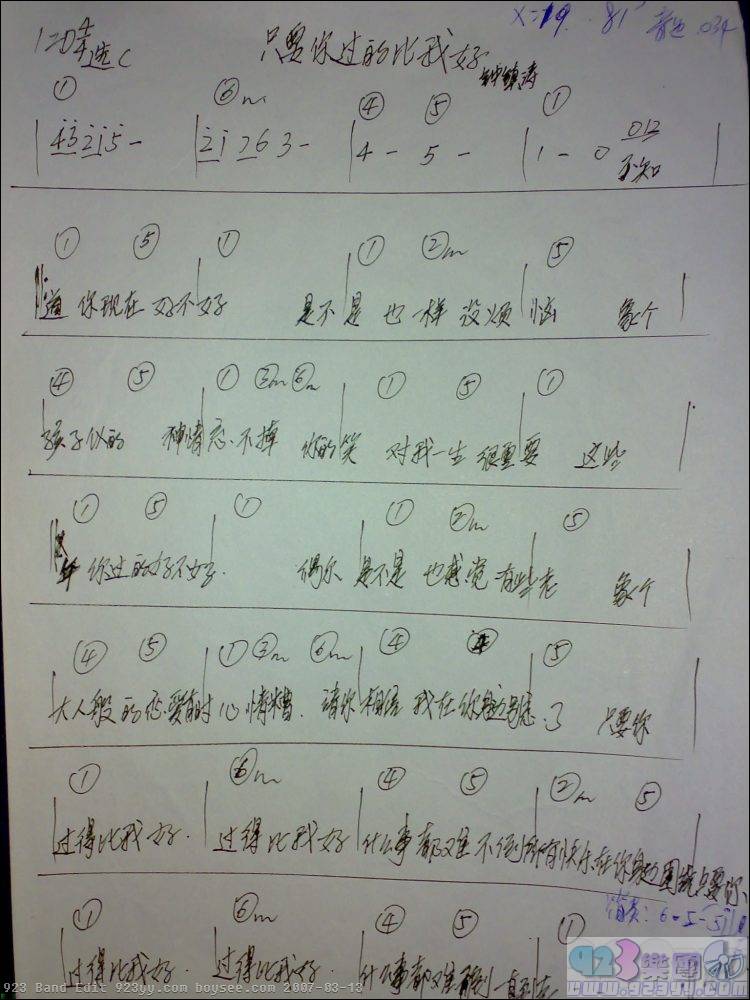 只要你过的比我好
钟镇涛
① ⑥m ④ ⑤ ①
43215 - 21763 - 4 - 5 - 1 - 0 012
不知
① ⑤ ① ① ②m ⑤
道 你现在 好不好 是不是 也一样 没烦恼 象个
④ ⑤ ① ③m ⑥m ① ⑤ ①
孩子似的 神情忘不掉 你的笑 对我一生 很重要 这些
① ⑤ ① ① ②m ⑤
年 你过的好不好 偶尔 是不是 也感觉 有些老 象个
④ ⑤ ① ③m ⑥m ④ ④ ⑤
大人般 的恋爱有时 心情糟 请你相信 我在你身边 只要你
① ⑥m ④ ⑤ ②m ⑤
过得比我好 过得比我好 什么事都难不倒 所有快乐在你身边围绕 只要你
① ⑥m ④ ⑤ ①
过得比我好 过得比我好 什么事都难不倒 一直到老
923 Band Edit 923yy.com boysee.com 2007-03-13
923樂團
www.923yy.com